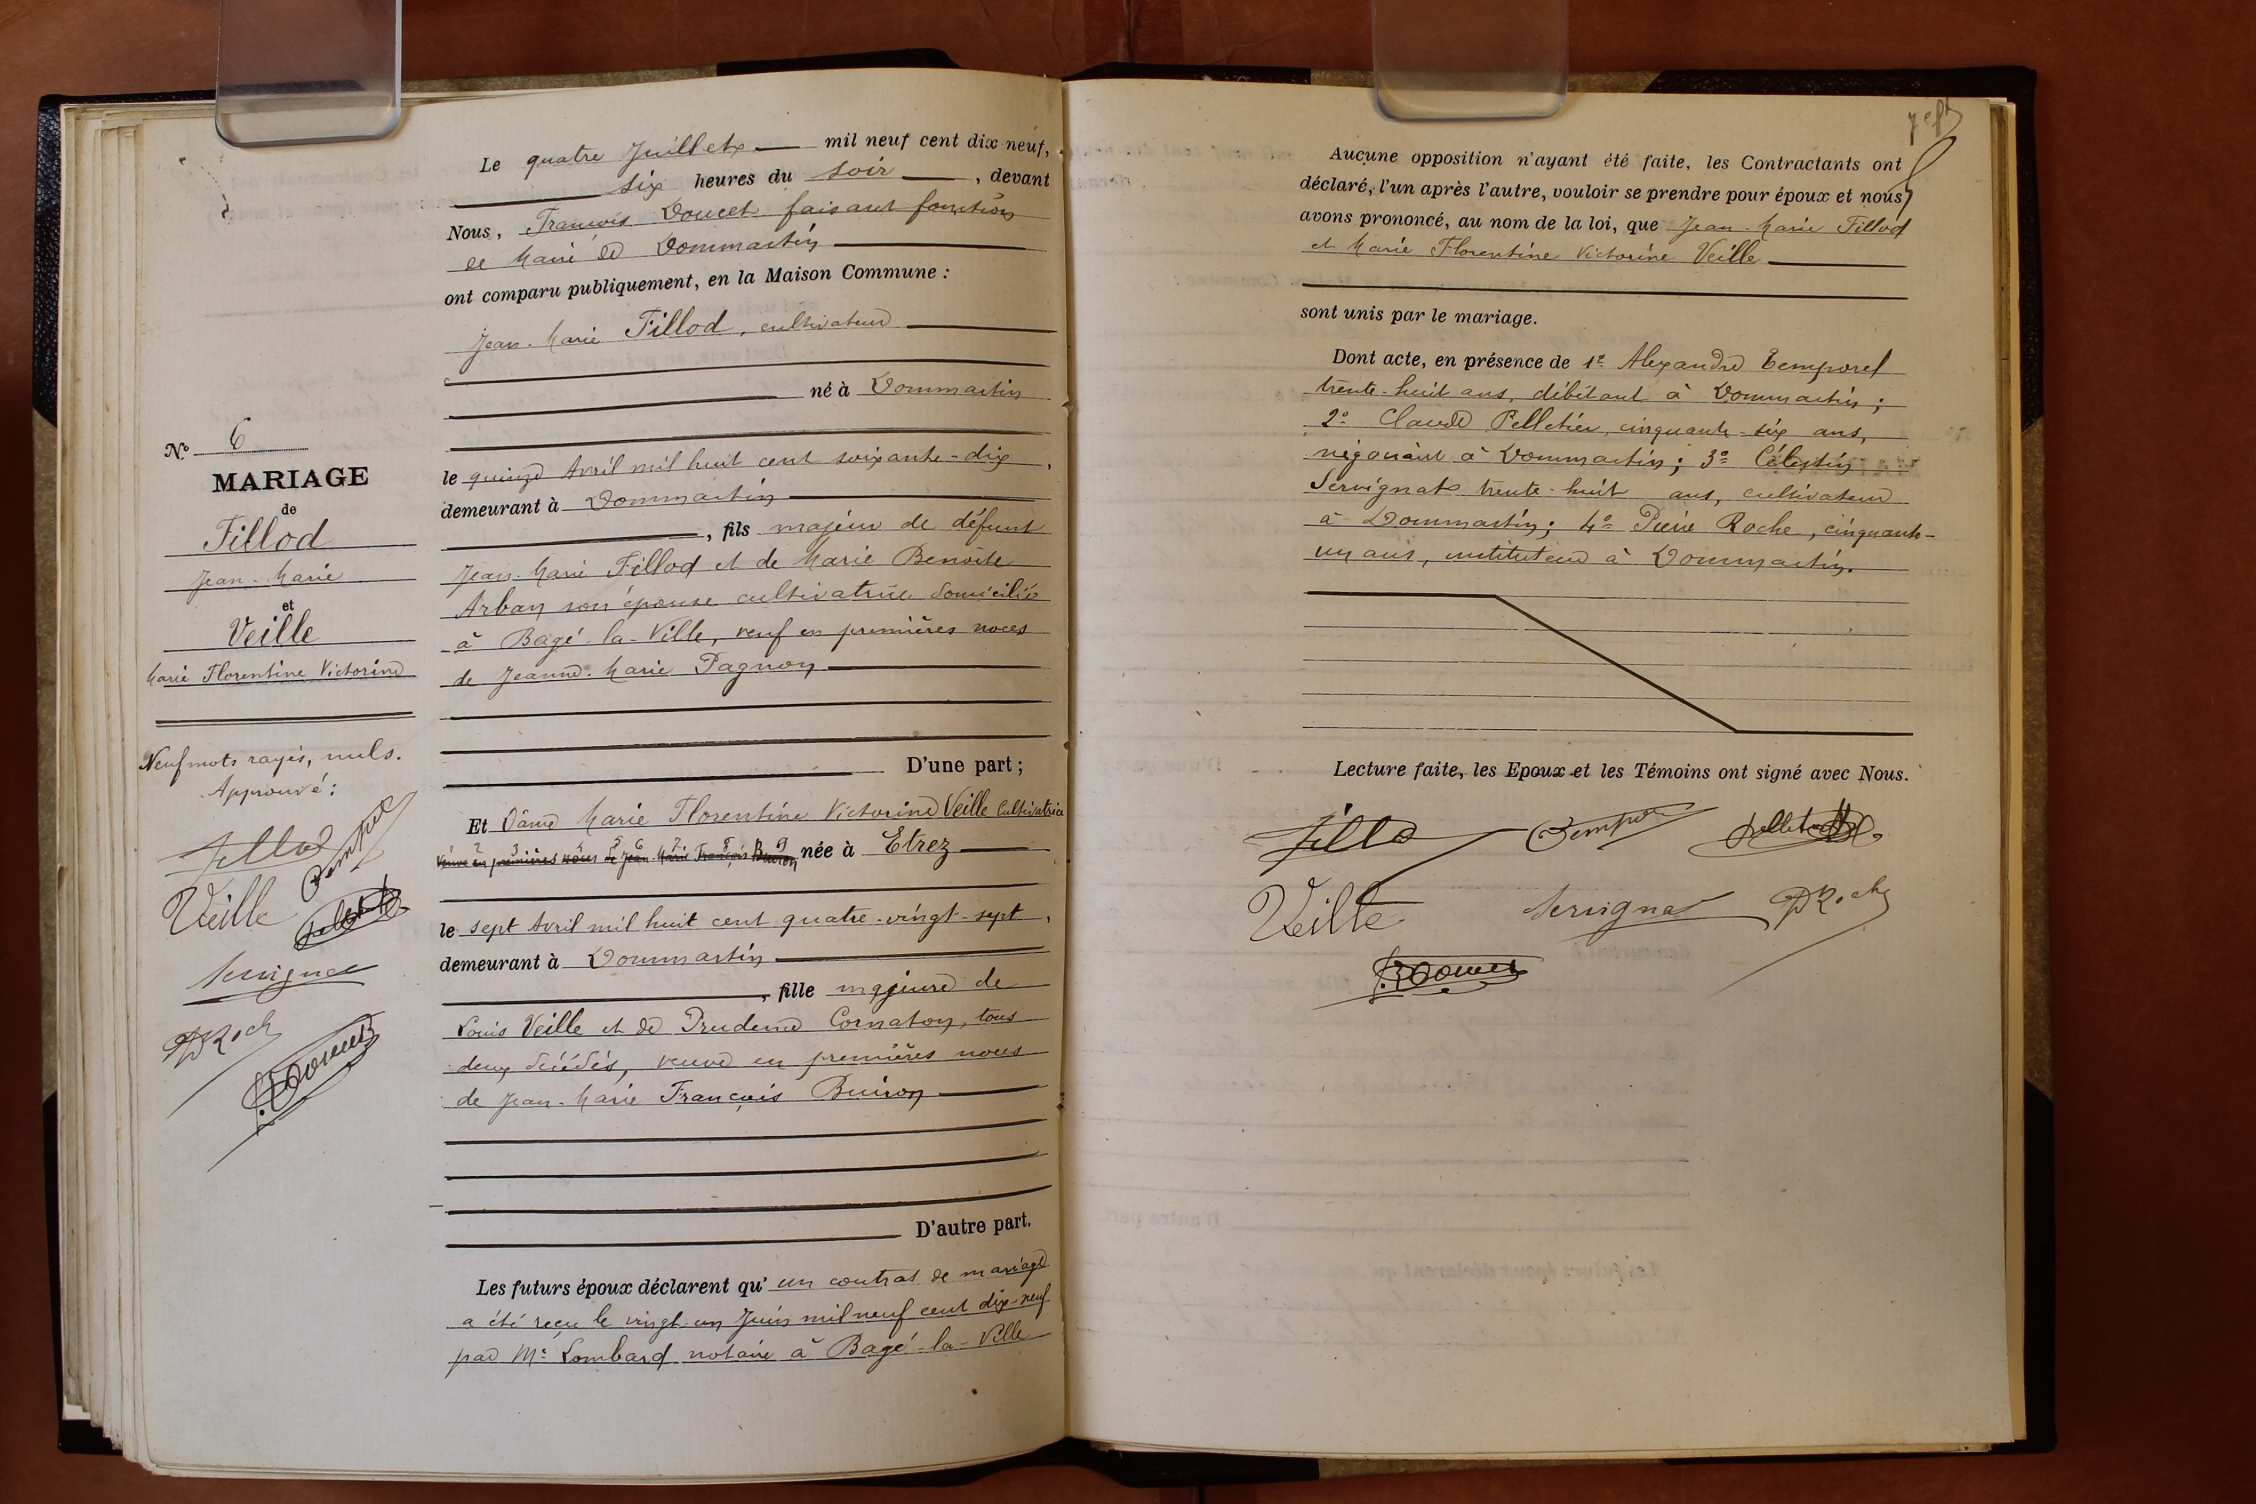 Le quatre Juillet mil neuf cent dix neuf,
six heures du soir, devant
Nous, François Doucet faisant fonction
de Maire de Dommartin
ont comparu publiquement, en la Maison Commune :
Jean-Marie Fillod, cultivateur
né à Dommartin
le quinze Avril mil huit cent soixante-dix,
demeurant à Dommartin
, fils majeur de défunt
Jean-Marie Fillod et de Marie Benoite
Arban son épouse cultivatrice domiciliée
à Bagé-la-Ville, veuf en premières noces
de Jeanne-Marie Pagnon
D'une part ;
Et Dâme Marie Florentine Victorine Veille Cultivatrice
Veuve en premières noces de Jean Marie François Buiron née à Etrez
le sept Avril mil huit cent quatre-vingt-sept,
demeurant à Dommartin
, fille majeure de
Louis Veille et de Prudence Cornaton, tous
deux décédés, veuve en premières noces
de Jean-Marie François Buiron
D'autre part.
Les futurs époux déclarent qu'un contrat de mariage
a été reçu le vingt-un Juin mil neuf cent dix-neuf
par Me Lombard notaire à Bagé-la-Ville
No 6
MARIAGE
de
Fillod
Jean-Marie
et
Veille
Marie Florentine Victorine
Neuf mots rayés, nuls.
Approuvé :
Fillod
Temporel
Veille
Pelletier
Servignat
P Roche
F. Doucet
Aucune opposition n'ayant été faite, les Contractants ont
déclaré, l'un après l'autre, vouloir se prendre pour époux et nous
avons prononcé, au nom de la loi, que Jean-Marie Fillod
et Marie Florentine Victorine Veille
sont unis par le mariage.
Dont acte, en présence de 1º Alexandre Temporel
trente-huit ans, débitant à Dommartin ;
2º Claude Pelletier, cinquante-six ans,
négociant à Dommartin ; 3º Célestin
Servignat trente-huit ans, cultivateur
à Dommartin ; 4º Pierre Roche, cinquante-
un ans, instituteur à Dommartin.
Lecture faite, les Epoux et les Témoins ont signé avec Nous.
Fillod Temporel Pelletier
Veille Servignat P Roche
F. Doucet